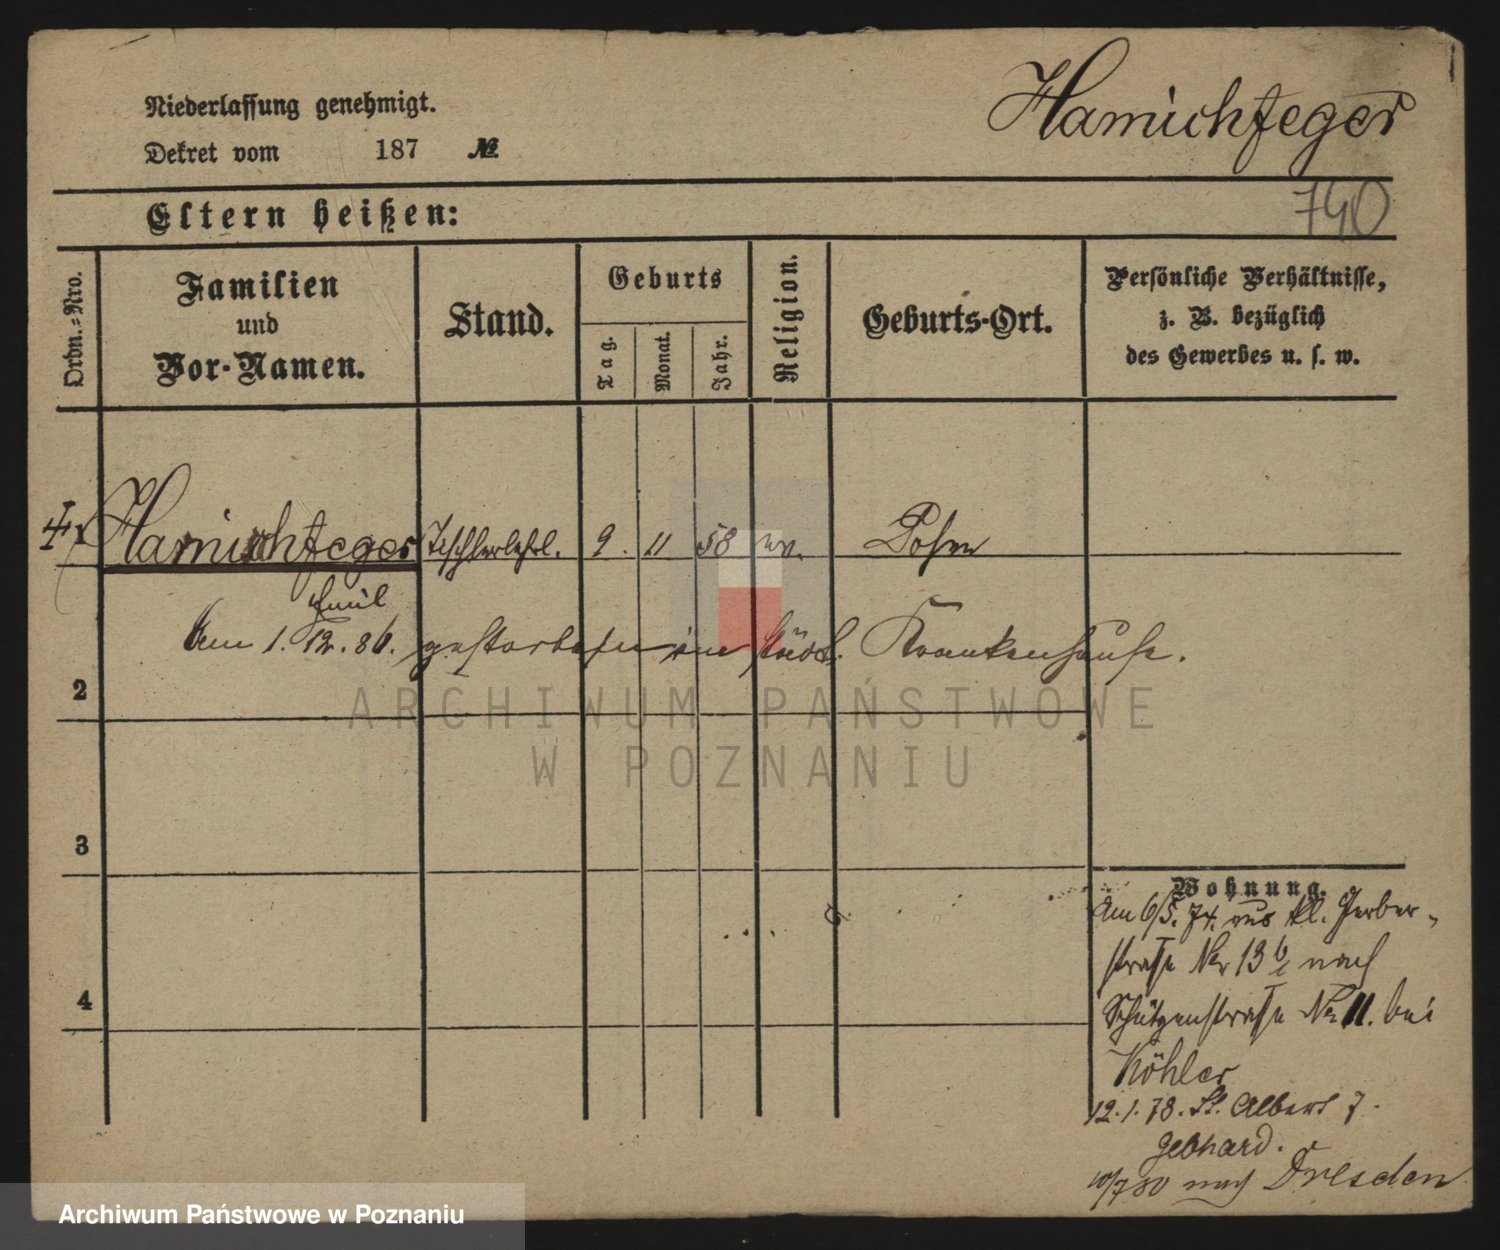 Niederlassung genehmigt.
Dekret vom 187 №
Hamichfeger
Eltern heißen:
740
Ordn.-Nro.
Familien
und
Vor-Namen.
Stand.
Geburts
Tag.
Monat.
Jahr.
Religion.
Geburts-Ort.
Persönliche Verhältnisse,
z. B. bezüglich
des Gewerbes u. s. w.
Hamichfeger Tischlerlehrl. 9. 11 58 ev. Posen
Emil
Am 1. 12. 86. gestorben im städt. Krankenhause.
2
ARCHIWUM PAŃSTWOWE
W POZNANIU
3
Wohnung.
Am 6/5. 74. aus kl. Gerber-
straße Nr 13 nach
Schützenstraße Nr 11. bei
Köhler
4
12.1.78. St. Albert 7.
Gebhard.
10/7 80 nach Dresden
Archiwum Państwowe w Poznaniu